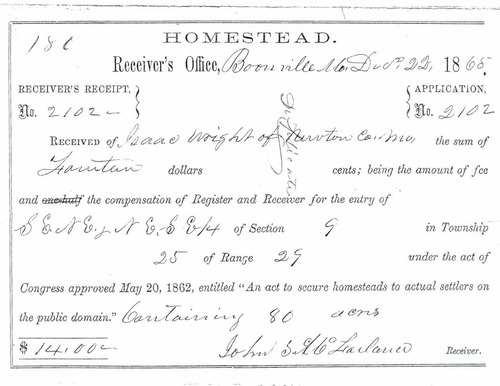 180
HOMESTEAD.
Receiver's Office, Boonville Mo. Decr. 22, 1865
RECEIVER'S RECEIPT, No. 2102
APPLICATION, No. 2102
Duplicate
RECEIVED of Isaac Wright of Newton Co. Mo, the sum of
Fourteen dollars cents; being the amount of fee
and one-half the compensation of Register and Receiver for the entry of
S E N E & N E S E/4 of Section 9 in Township
25 of Range 29 under the act of
Congress approved May 20, 1862, entitled "An act to secure homesteads to actual settlers on
the public domain." Containing 80 acres
$ 14.00 John S McFarland Receiver.